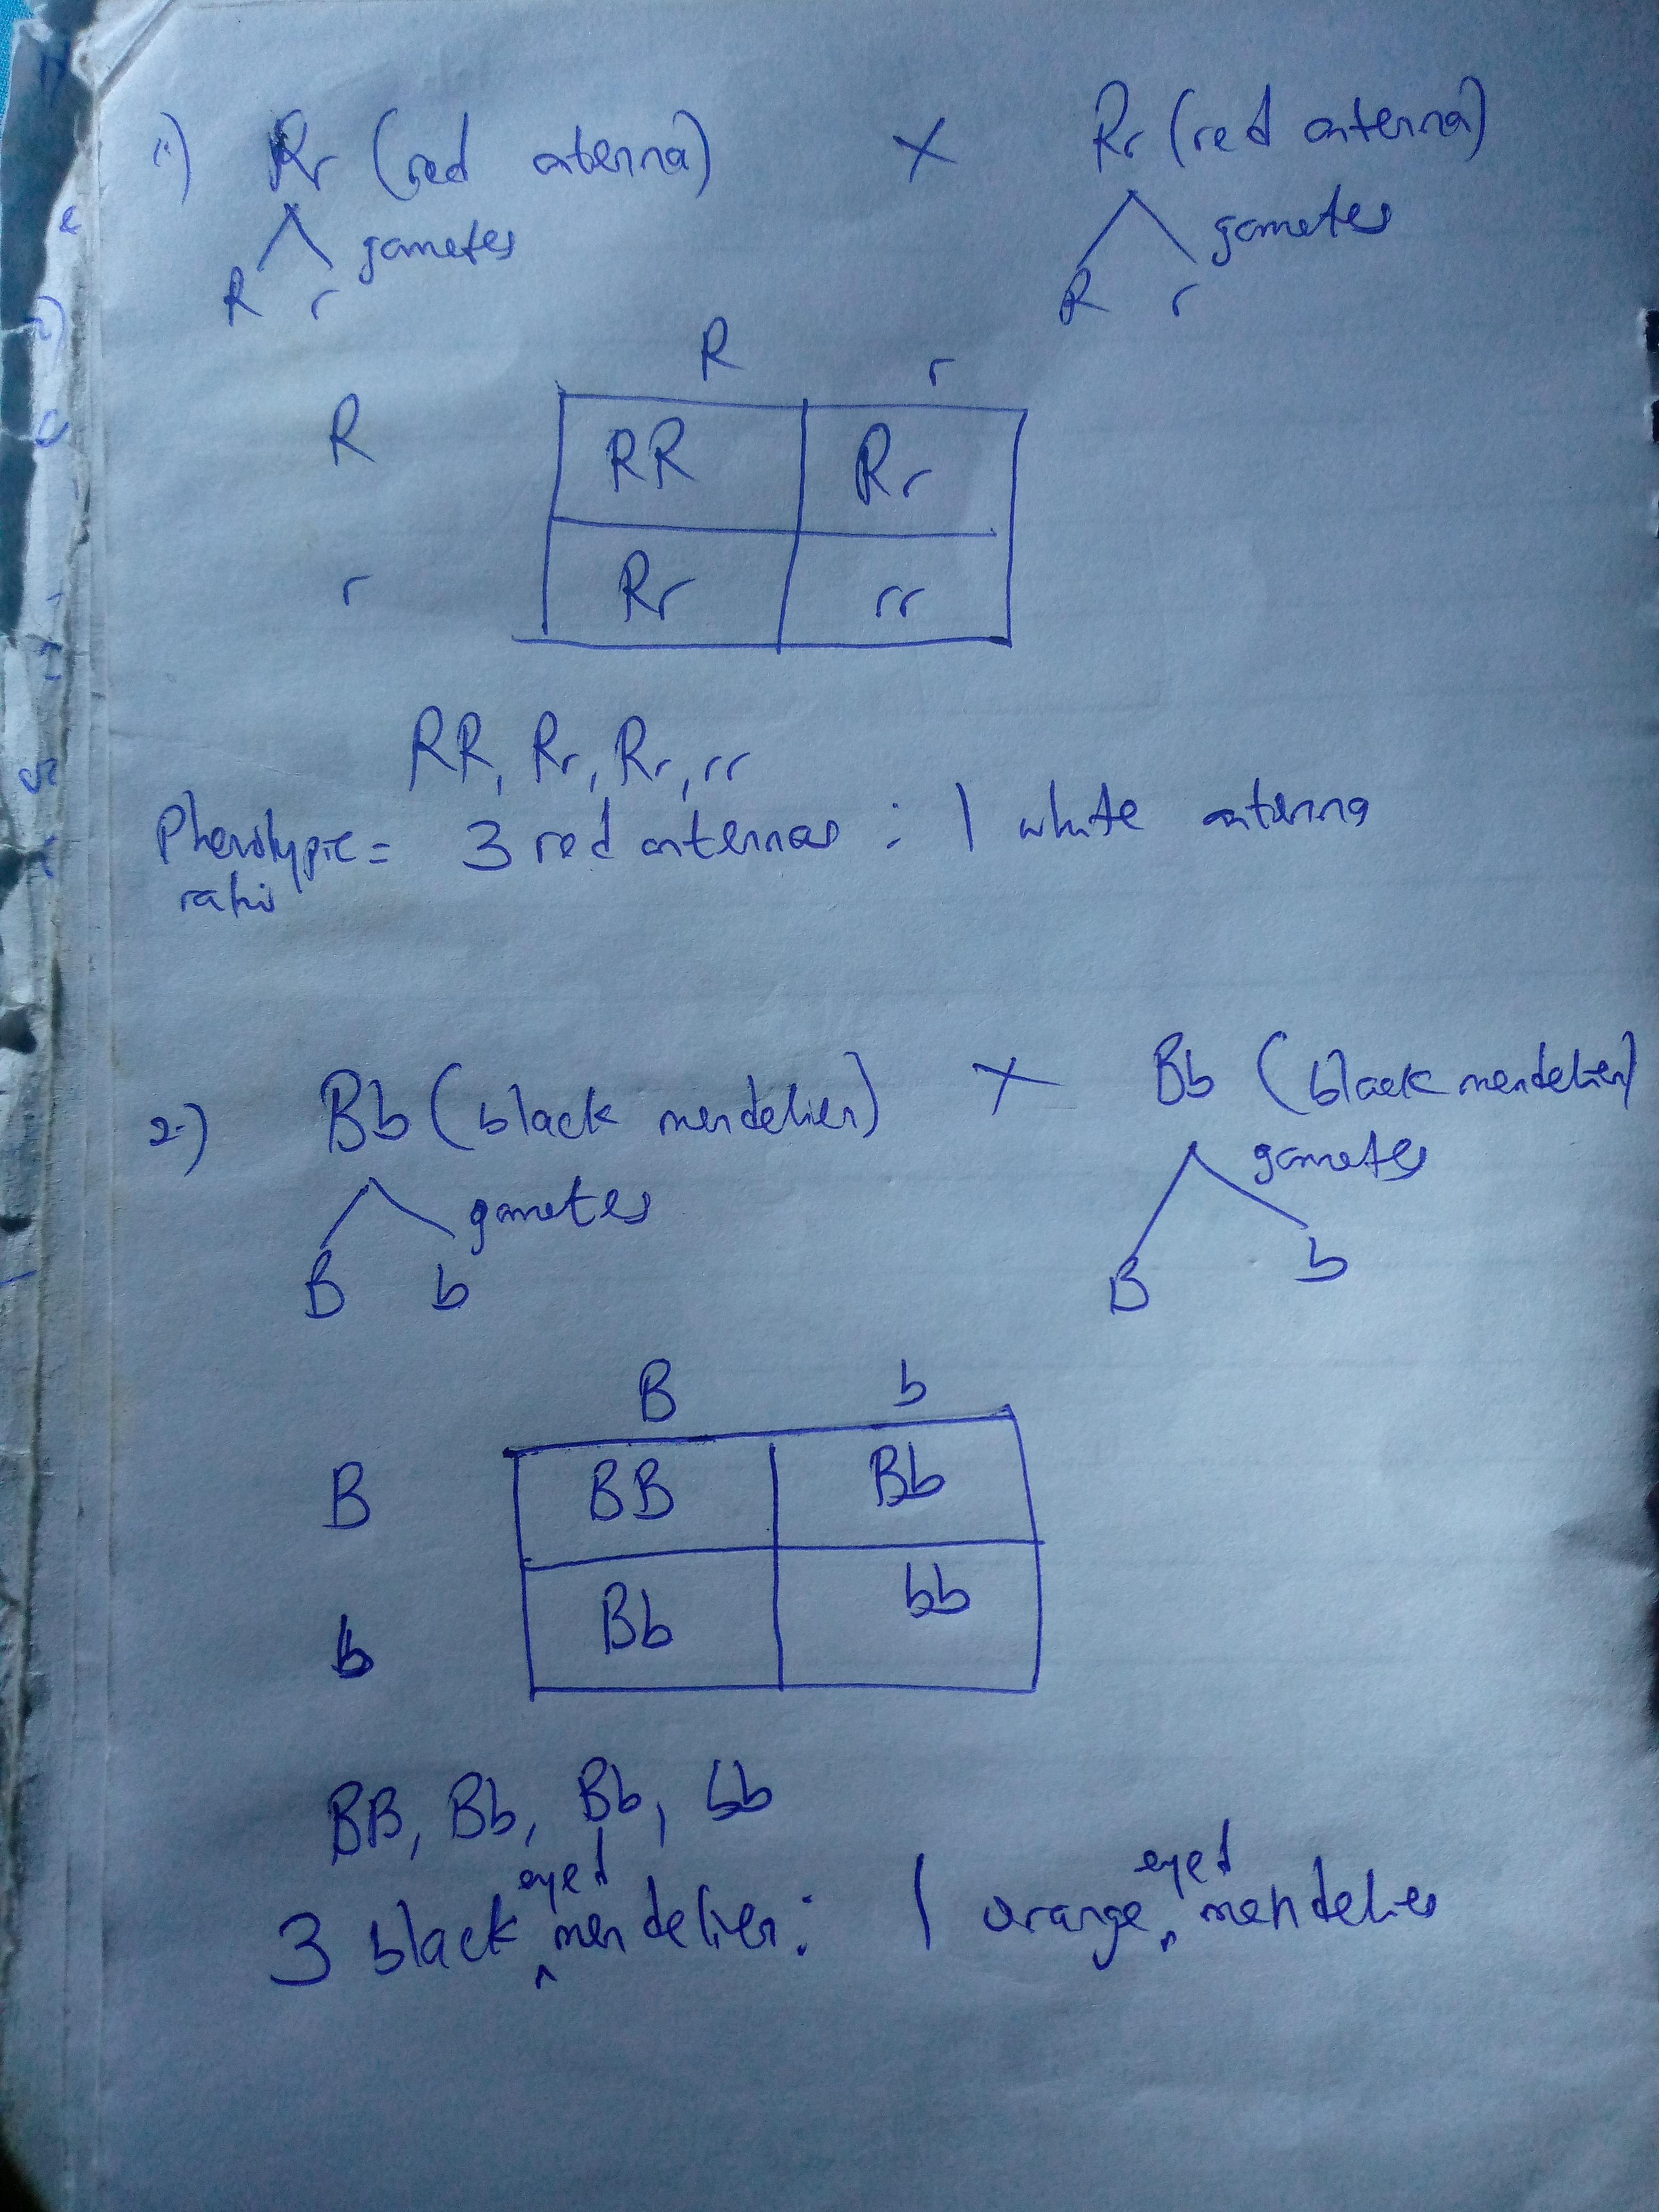 1.) Rr (red antenna) X Rr (red antenna)
gametes gametes
R r R r
R r
R RR Rr
r Rr rr
RR, Rr, Rr, rr
Phenotypic = 3 red antennas : 1 white antenna
ratio
2.) Bb (black mendelien) X Bb (black mendelien)
gametes gametes
B b B b
B b
B BB Bb
b Bb bb
BB, Bb, Bb, bb
3 black eyed mendelien : 1 orange eyed mendelien